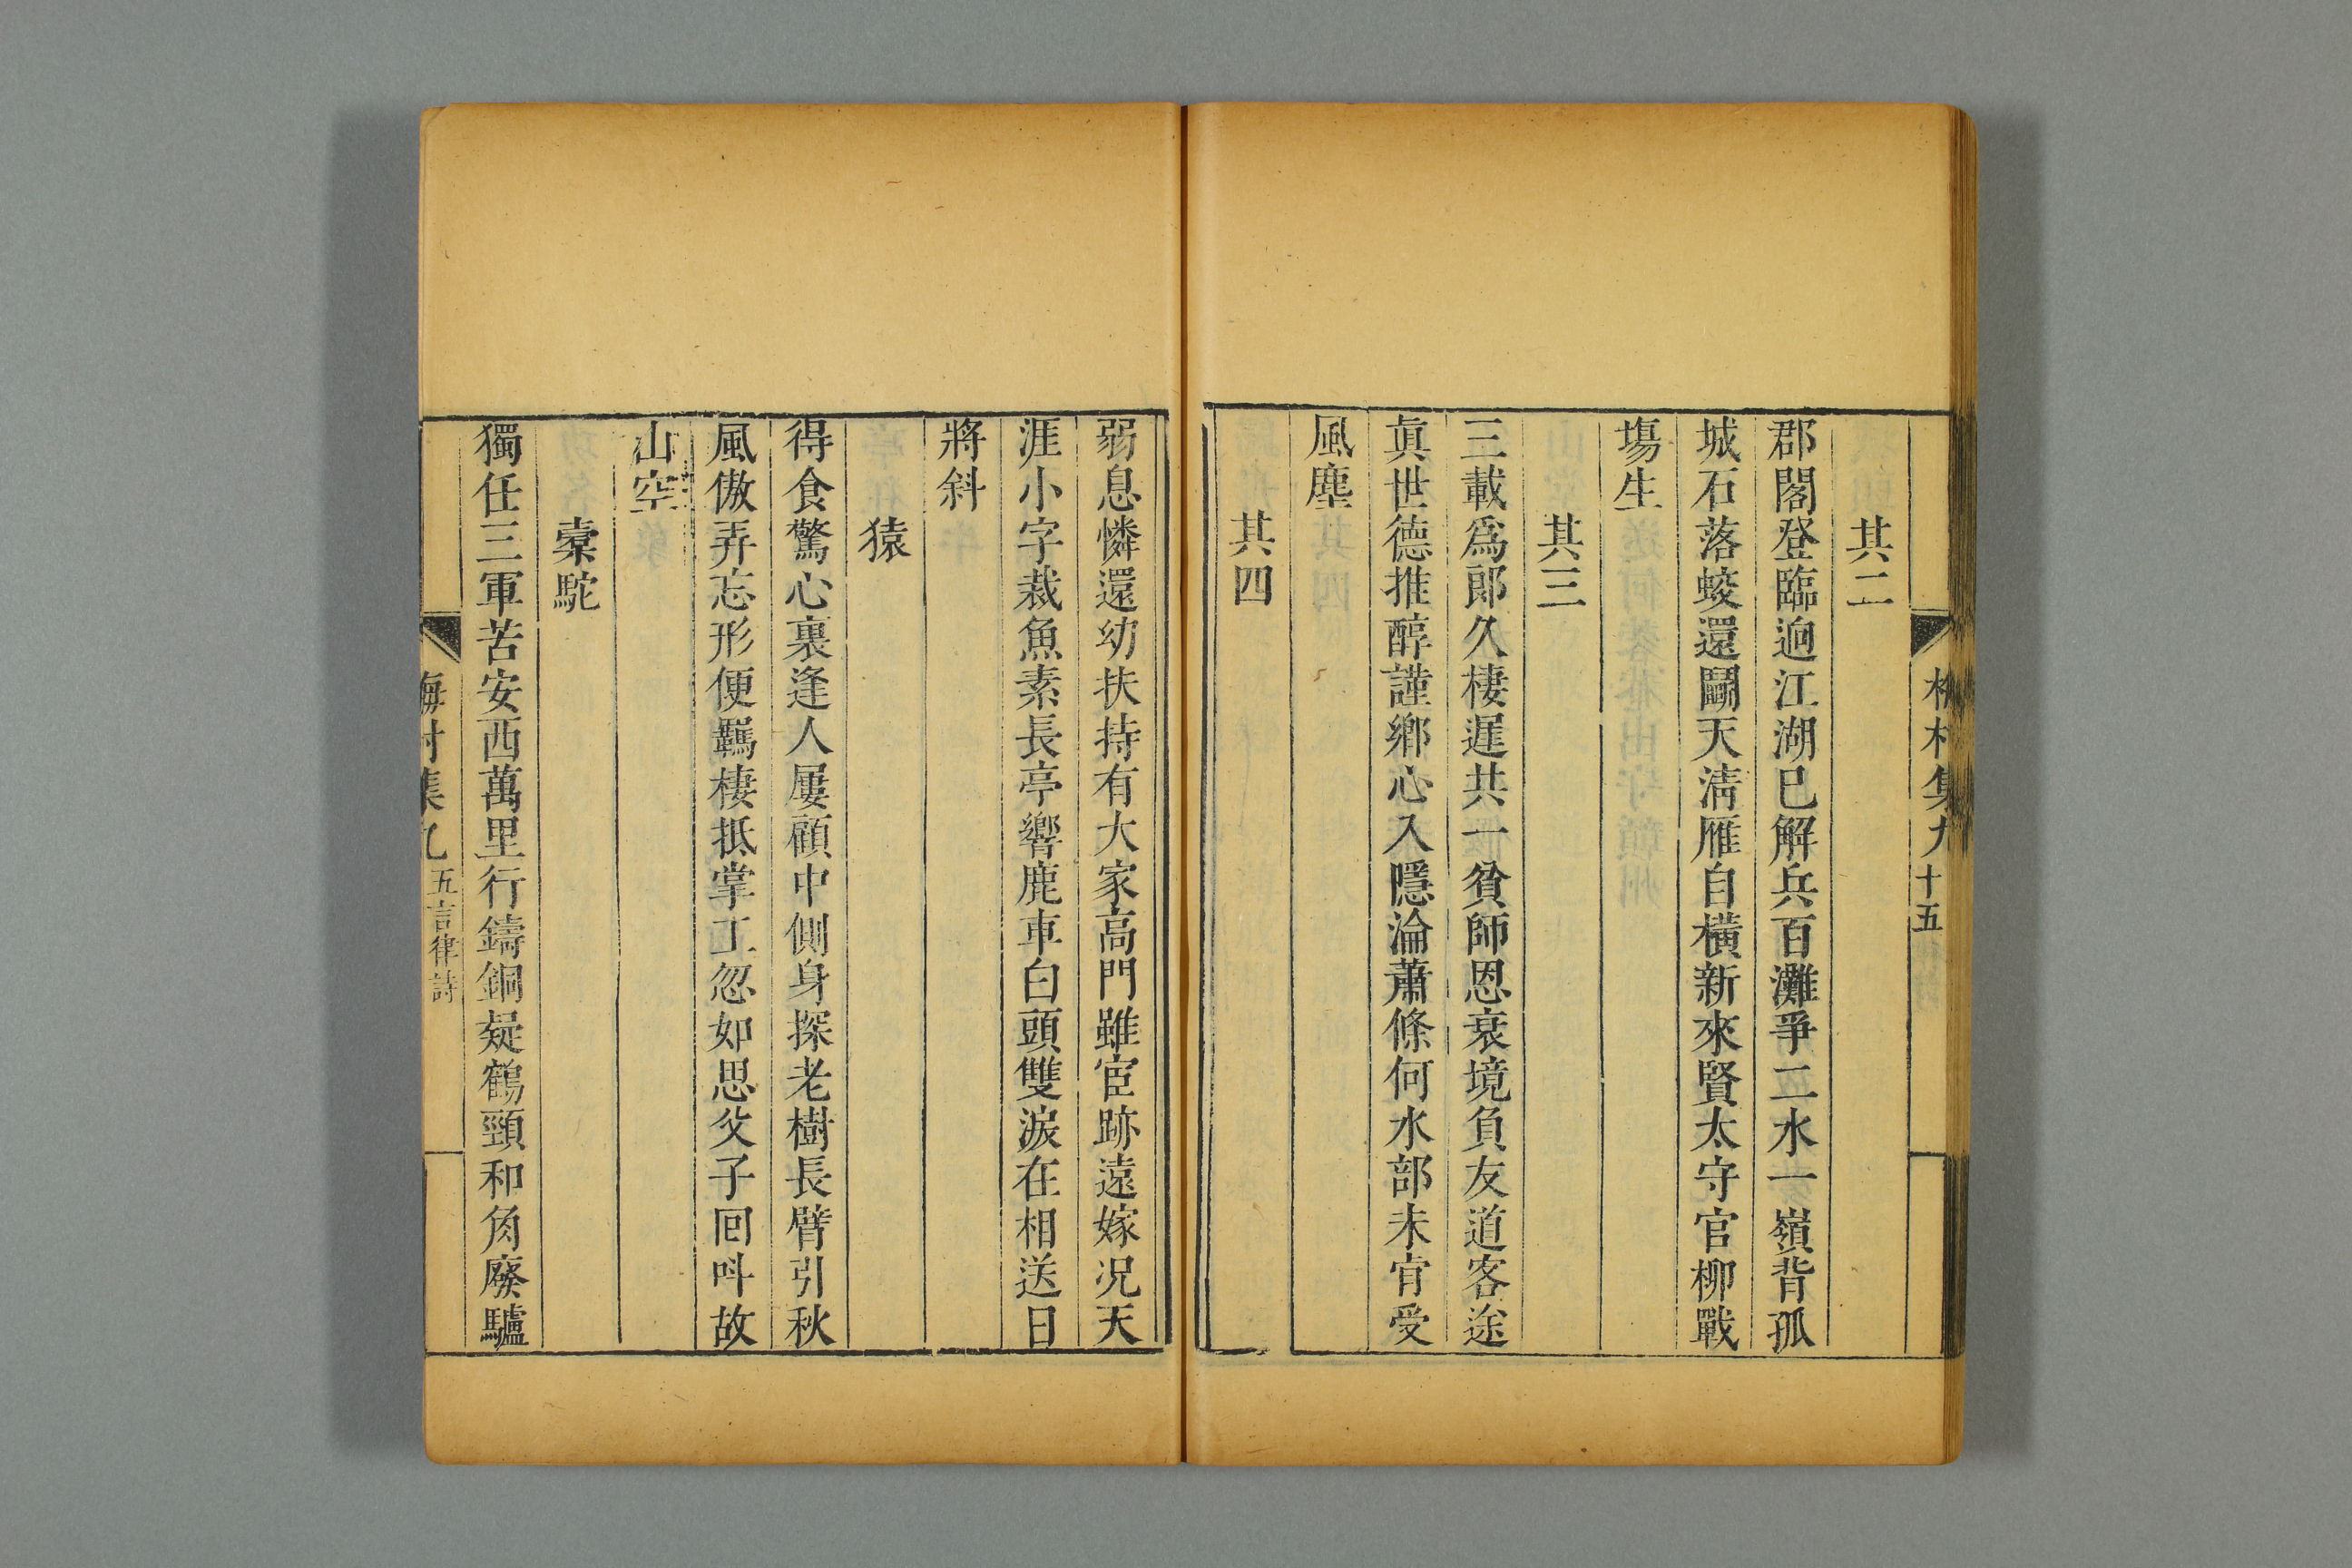 梅村集九 十五
其二
郡閣登臨迥江湖已解兵百灘爭二水一嶺背孤
城石落蛟還鬭天淸雁自橫新來賢太守官柳戰
塲生
其三
三載爲郎久棲遲共一貧師恩衰境負友道客途
眞世德推醇謹鄕心入隱淪蕭條何水部未肎受
風塵
其四
弱息憐還幼扶持有大家高門雖宦跡遠嫁况天
涯小字裁魚素長亭響鹿車白頭雙淚在相送日
將斜
猿
得食驚心裏逢人屢顧中側身探老樹長臂引秋
風傲弄忘形便羈棲抵掌工忽如思父子回呌故
山空
橐駝
獨任三軍苦安西萬里行鑄銅疑鶴頸和角廢驢
梅村集九 五言律詩